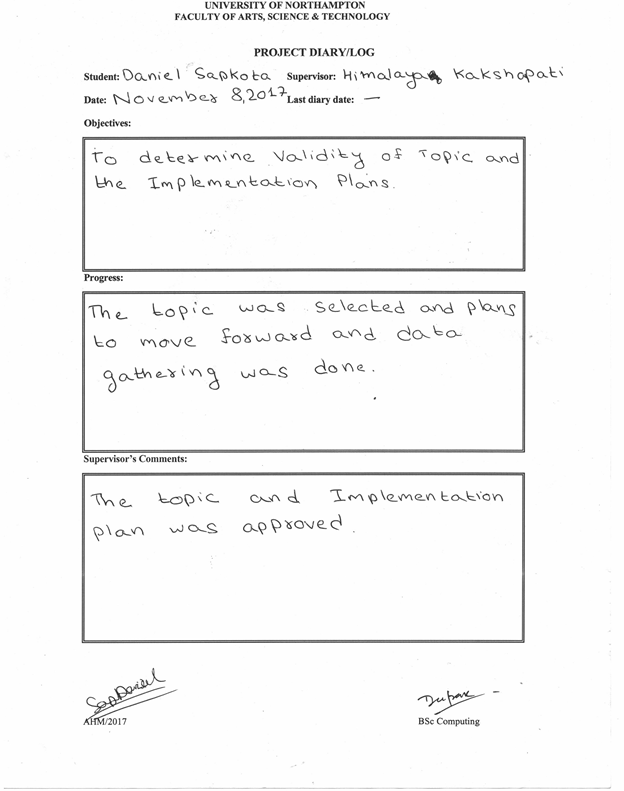 UNIVERSITY OF NORTHAMPTON
FACULTY OF ARTS, SCIENCE & TECHNOLOGY
PROJECT DIARY/LOG
Student: Daniel Sapkota Supervisor: Himalaya Kakshapati
Date: November 8, 2017 Last diary date: —
Objectives:
To determine Validity of Topic and
the Implementation Plans.
Progress:
The topic was selected and plans
to move forward and data
gathering was done.
Supervisor's Comments:
The topic and Implementation
plan was approved.
SapDaniel
AHM/2017
BSc Computing